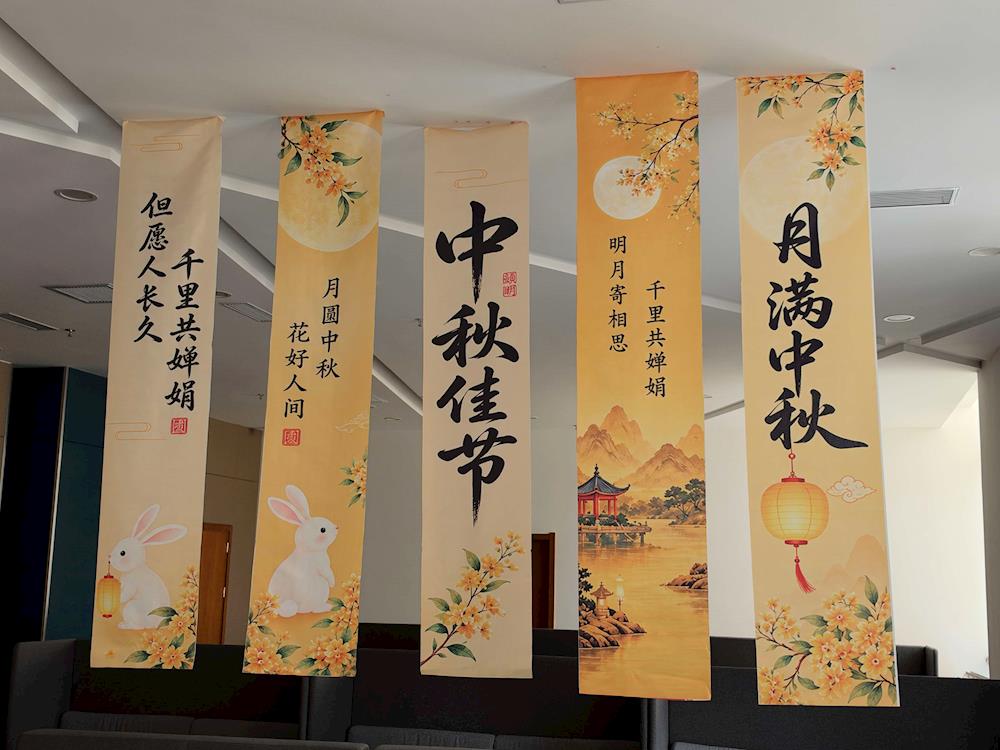 但愿人长久
千里共婵娟
月圆中秋
花好人间
中秋佳节
明月寄相思
千里共婵娟
月满中秋